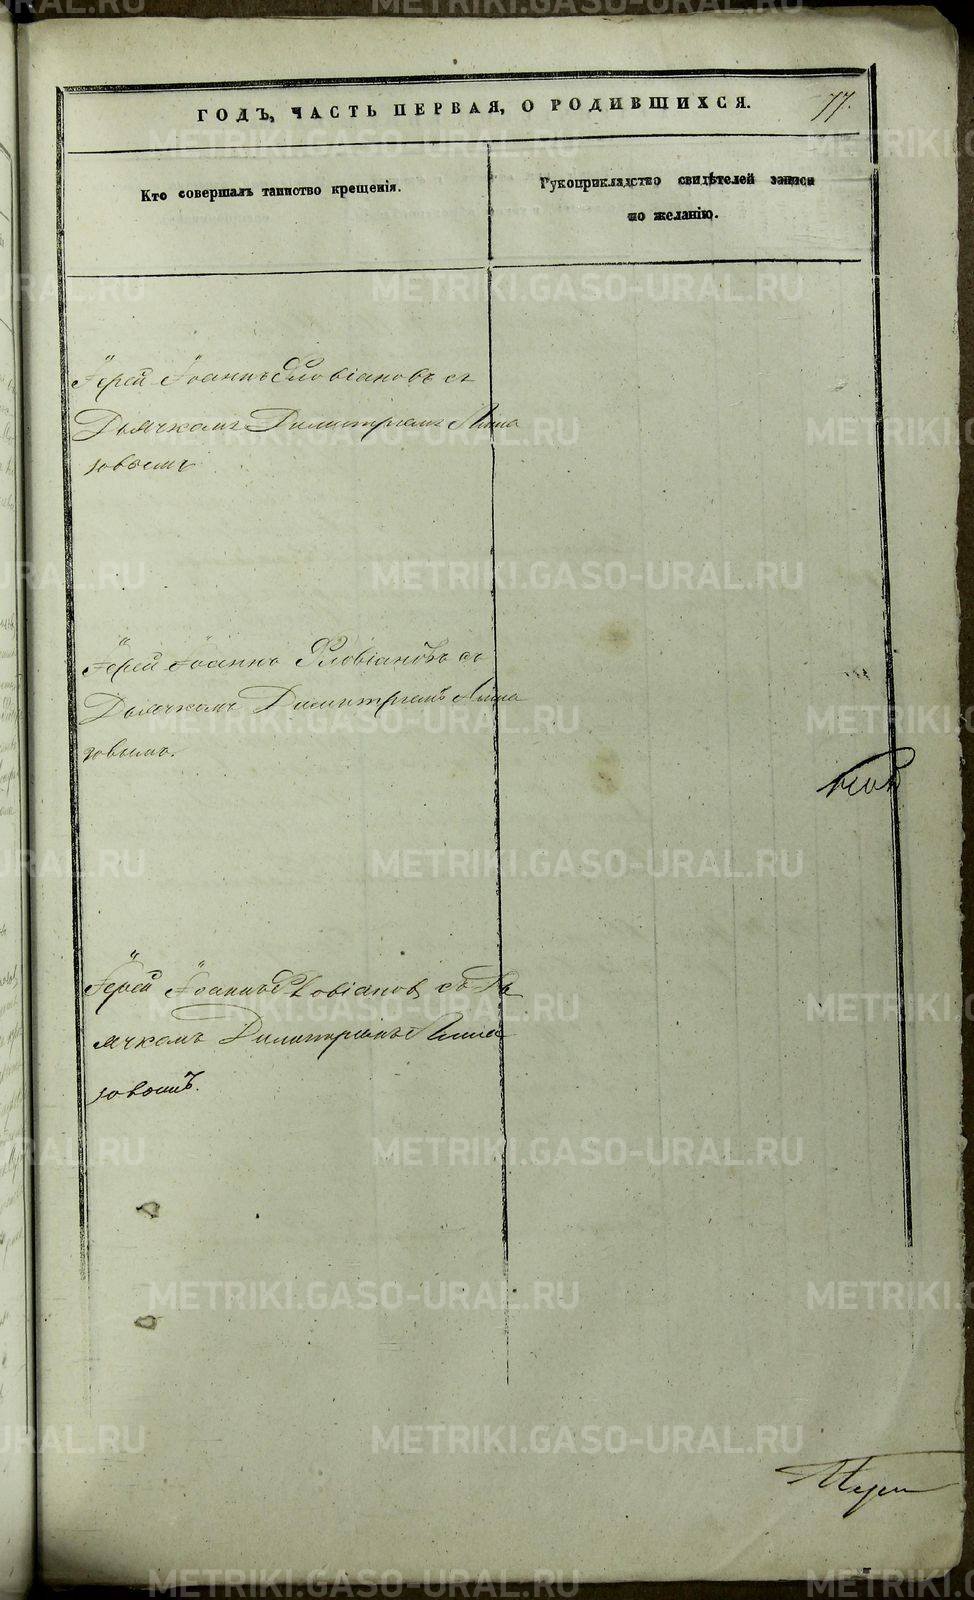 ГОДЪ, ЧАСТЬ ПЕРВАЯ, О РОДИВШИХСЯ.
77.
Кто совершалъ таинство крещенія.
Рукоприкладство свидѣтелей записи
по желанію.
Іерей Іоаннъ Словіановъ съ
Дьячкомъ Димитріемъ
Іерей Іоаннъ Словіановъ съ
Дьячкомъ Димитріемъ
Іерей Іоаннъ Словіановъ съ Дь
ячкомъ Димитріемъ
METRIKI.GASO-URAL.RU